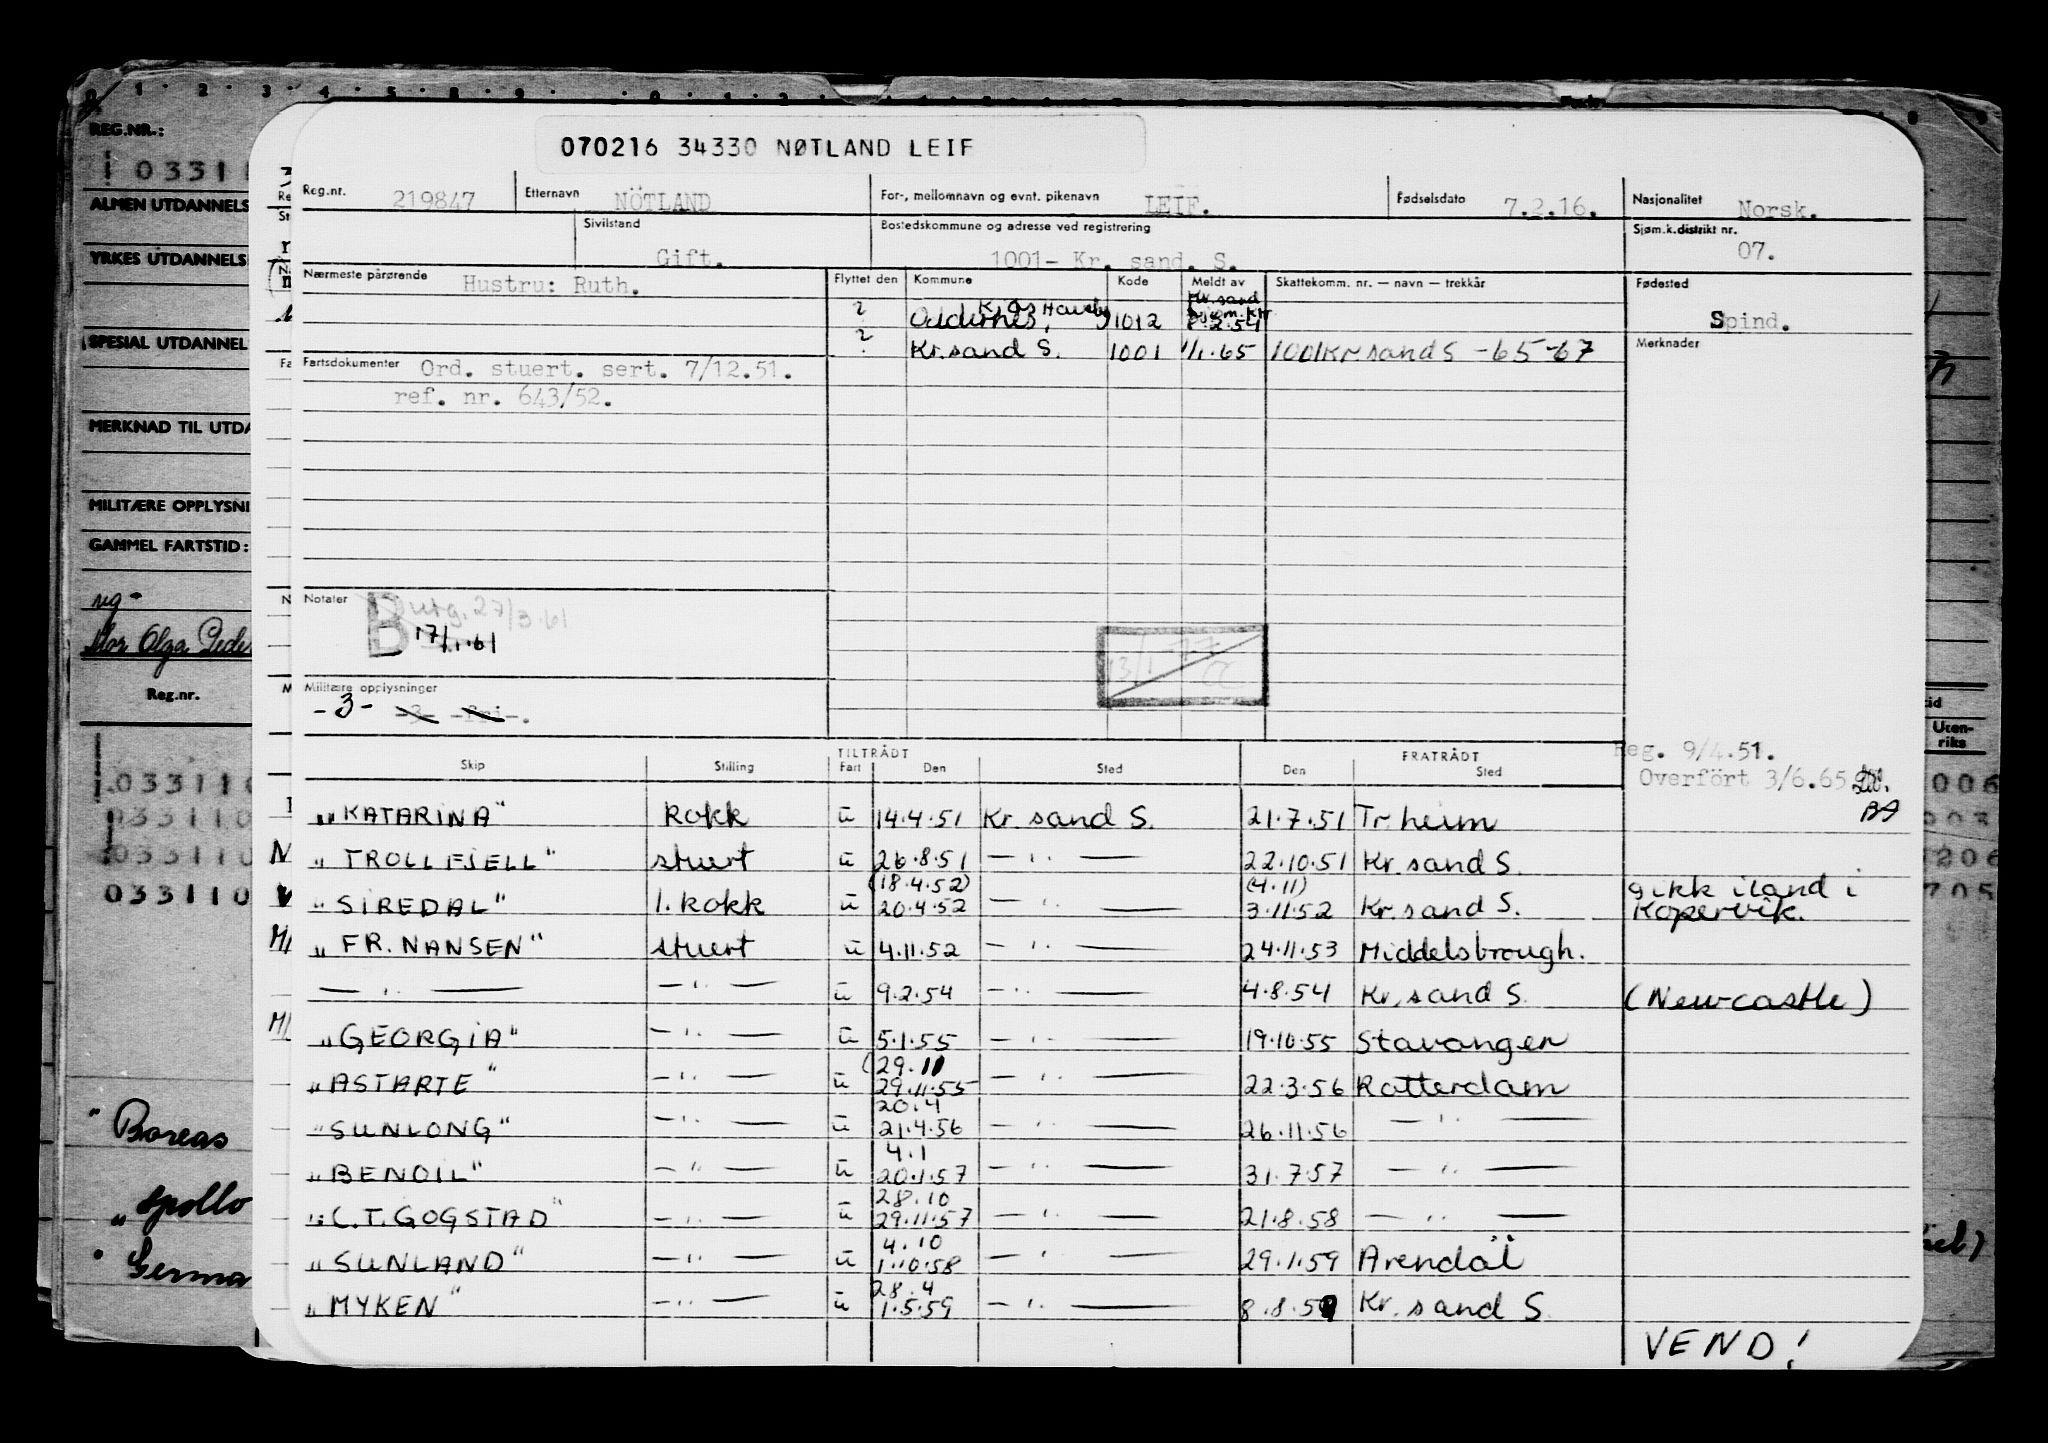 070216 34330 NØTLAND LEIF
Reg.nr. 219847 Etternavn NÖTLAND For-, mellomnavn og evnt. pikenavn LEIF. Fødselsdato 7.2.16. Nasjonalitet Norsk.
Sivilstand Gift. Bostedskommune og adresse ved registrering 1001- Kr. sand. S. Sjøm.k.distrikt nr. 07.
Nærmeste pårørende Hustru: Ruth. Flyttet den Kommune Kode Meldt av Skattekomm. nr. — navn — trekkår Fødested Spind.
? Oddernes, 1012 Kr.sand 2.54
? Kr.sand S. 1001 1/1.65 1001 Kr sand S -65-67 Merknader
Fartsdokumenter Ord. stuert. sert. 7/12.51.
ref. nr. 643/52.
Notater B utg. 27/3.61
17/1.61
13/1-77
Militære opplysninger
-3- -3- -fri-.
TILTRÅDT FRATRÅDT
Skip Stilling Fart Den Sted Den Sted
Reg. 9/4.51.
Overfört 3/6.65
BA
"KATARINA" Kokk u 14.4.51 Kr. sand S. 21.7.51 Tr.heim
"TROLLFJELL" stuert u 26.8.51 — " — 22.10.51 Kr. sand S.
(18.4.52) (4.11)
"SIREDAL" 1. kokk u 20.4.52 — " — 3.11.52 Kr. sand S. gikk iland i Kopervik.
"FR. NANSEN" stuert u 4.11.52 — " — 24.11.53 Middelsbrough.
— " — — " — u 9.2.54 — " — 4.8.54 Kr. sand S. (Newcastle)
"GEORGIA" — " — u 5.1.55 — " — 19.10.55 Stavanger
(29.11
"ASTARTE" — " — u 29.11.55 — " — 22.3.56 Rotterdam
20.4
"SUNLONG" — " — u 21.4.56 — " — 26.11.56 — " —
4.1
"BENOIL" — " — u 20.1.57 — " — 31.7.57 — " —
28.10
"C.T. GOGSTAD" — " — u 29.11.57 — " — 21.8.58 — " —
4.10
"SUNLAND" — " — u 1.10.58 — " — 29.1.59 Arendal
28.4
"MYKEN" — " — u 1.5.59 — " — 8.8.59 Kr. sand S.
VEND!
REG.NR.:
03311
ALMEN UTDANNELS
YRKES UTDANNELS
SPESIAL UTDANNEL
MERKNAD TIL UTDA
MILITÆRE OPPLYSNI
GAMMEL FARTSTID:
Mor Olga
Reg.nr.
033110
033110
033110
033110
"Boreas
"Apollo
Uten-
riks
006
206
705